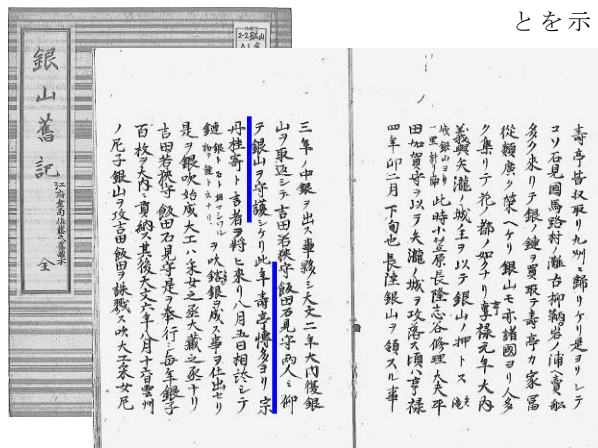 とを示
銀山舊記
全
壽亭皆収取リ九州ニ歸リケリ是ヨリシテ
コソ石見国馬路村ノ灘古柳鞆岩ノ浦ヘ賣舩
多ク來リテ銀ノ鏈ヲ買取テ壽亭カ家冨
從類廣ク榮ヘケリ銀山モ亦諸國ヨリ人多
ク集リテ花ノ都ノ如クナリ享禄元年大内
義興矢瀧ノ城主ヲ以テ銀山ノ押トス
此時小笠原長隆志谷修理大夫平
田加賀守ヲ以テ矢瀧ノ城ヲ攻落ス頃ハ享禄
四年卯二月下旬也長隆銀山ヲ領スル事
三年ノ中銀ヲ出ス事夥シ天文二年大内復銀
山ヲ取返シテ吉田若狭守飯田石見守両人ニ仰
テ銀山ヲ守護シケリ此年壽亭博多ヨリ宗
丹桂寿ト言者ヲ将ヒ來リ八月五日相於シテ
鏈ヲ吹鎔銀ヲ成ス事ヲ仕出セリ
是ヲ銀吹始成大工ハ采女之丞大蔵之丞ナリ
吉田若狭守飯田石見守是ヲ奉行シ毎年銀子
百枚ヲ大内ニ貢納ス其後天文六年八月十六日雲州
ノ尼子銀山ヲ攻吉田飯田ヲ誅戮ス吹大工采女尼